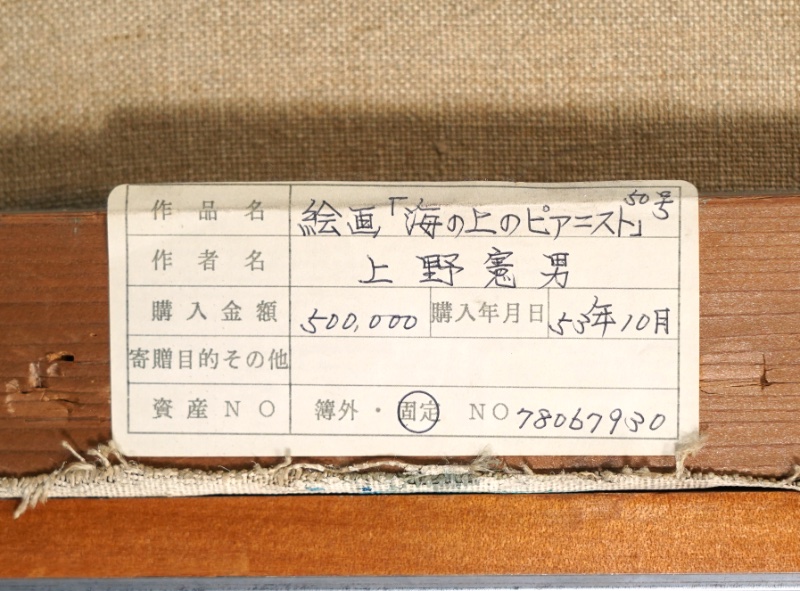 作品名 絵画「海の上のピアニスト」50号
作者名 上野憲男
購入金額 500,000 購入年月日 53年10月
寄贈目的その他
資産NO 簿外・固定 NO 78067930